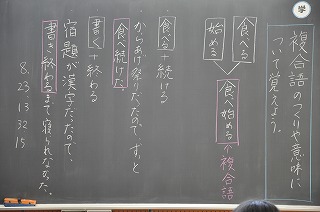 学
複合語のつくりや意味に
ついて覚えよう。
食べる
始める
食べ始める←複合語
食べる+続ける
からあげ祭りだったので、ずっと
食べ続けた。
書く+終わる
宿題が漢字だったので、
書き終わるまで寝られなかった。
8.23 13 32 15